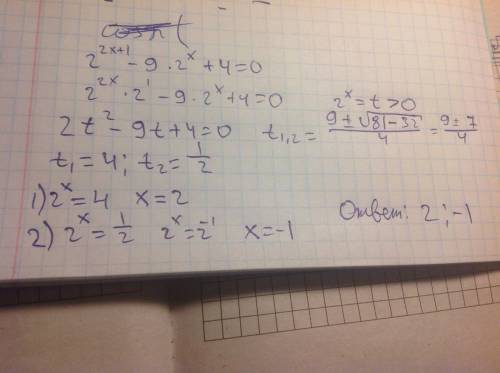 2^{2x+1} - 9 · 2^x + 4 = 0
2^{2x} · 2^1 - 9 · 2^x + 4 = 0    2^x = t > 0
2t^2 - 9t + 4 = 0    t_{1,2} = \frac{9 ± \sqrt{81-32}}{4} = \frac{9 ± 7}{4}
t_1 = 4; t_2 = \frac{1}{2}
1) 2^x = 4    x = 2
2) 2^x = \frac{1}{2}    2^x = 2^{-1}    x = -1    Ответ: 2; -1